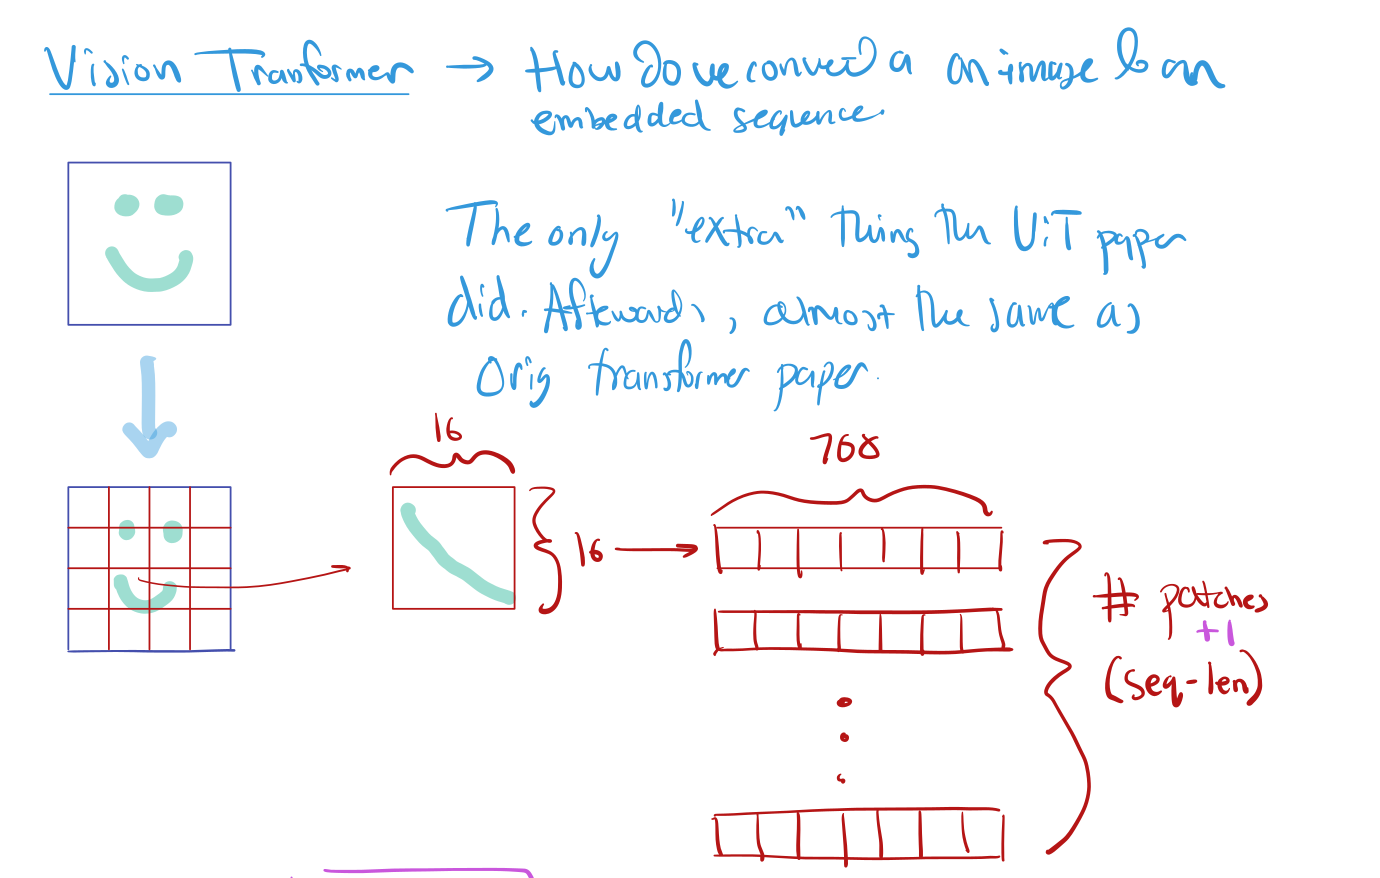 Vision Transformer → How do we convert a an image to an
embedded sequence.
The only "extra" thing the ViT paper
did. Afterwards, almost the same as
orig transformer paper.
16
768
16
# patches
+1
(seq-len)